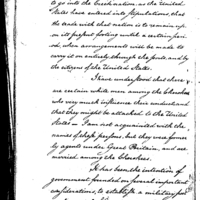 to go into the Creek nation, as the United
States have entered into stipulations, that
the trade with that nation is to remain up-
on its present footing until a certain peri-
od, when arrangements will be made to
carry it on entirely through the ports, and by
the citizens of the United States.
I have understood that there
are certain white men among the Cherokees
who very much influence their understand
that they might be attached to the United
States — I am not acquainted with the
names of these persons, but they were formerly
agents under Great Britain, and are
married among the Cherokees.
It has been the intention of
government founded on several important
considerations, to establish a military post